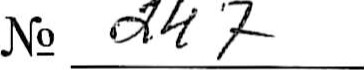 № 247